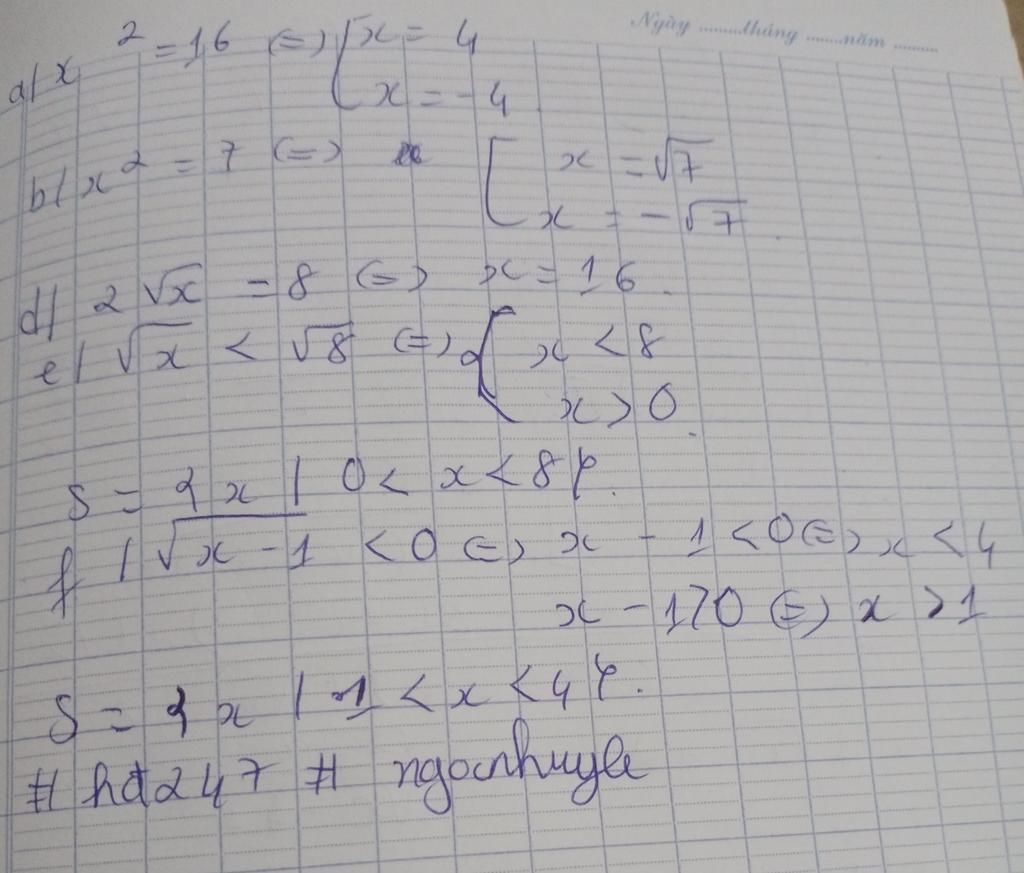 Ngày .........tháng .......năm .........
a/ x² = 16 (=) [ x = 4
x = -4
b/ x² = 7 (=) [ x = √7
x = -√7
d/ 2√x = 8 (=) x = 16.
e/ √x < √8 (=) { x < 8
x > 0.
S = {x | 0 < x < 8}.
f/ √x - 1 < 0 (=) x - 1 < 0 (=) x < 4
x - 1 > 0 (=) x > 1
S = {x | 1 < x < 4}.
# hđ247 # ngocnhuyle